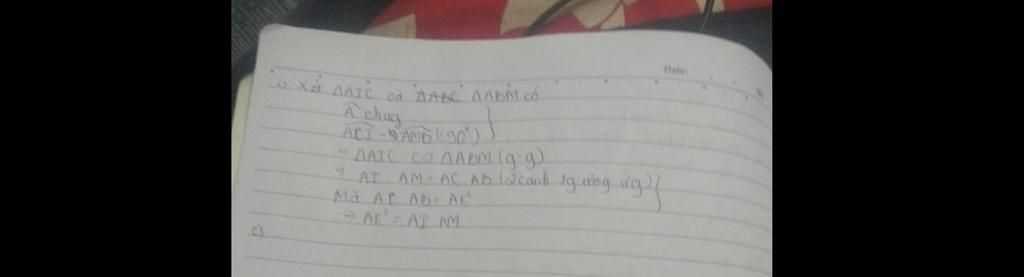 Date:
=> Xét ΔAIC và ΔABC ΔABM có
Â chug
ACI = AMB (=90°) }
=> ΔAIC ∽ ΔABM (g-g)
=> AI . AM = AC . AB (2 cạnh tg ứng) }
Mà AC . AB = AK²
=> AK² = AI . AM
c)